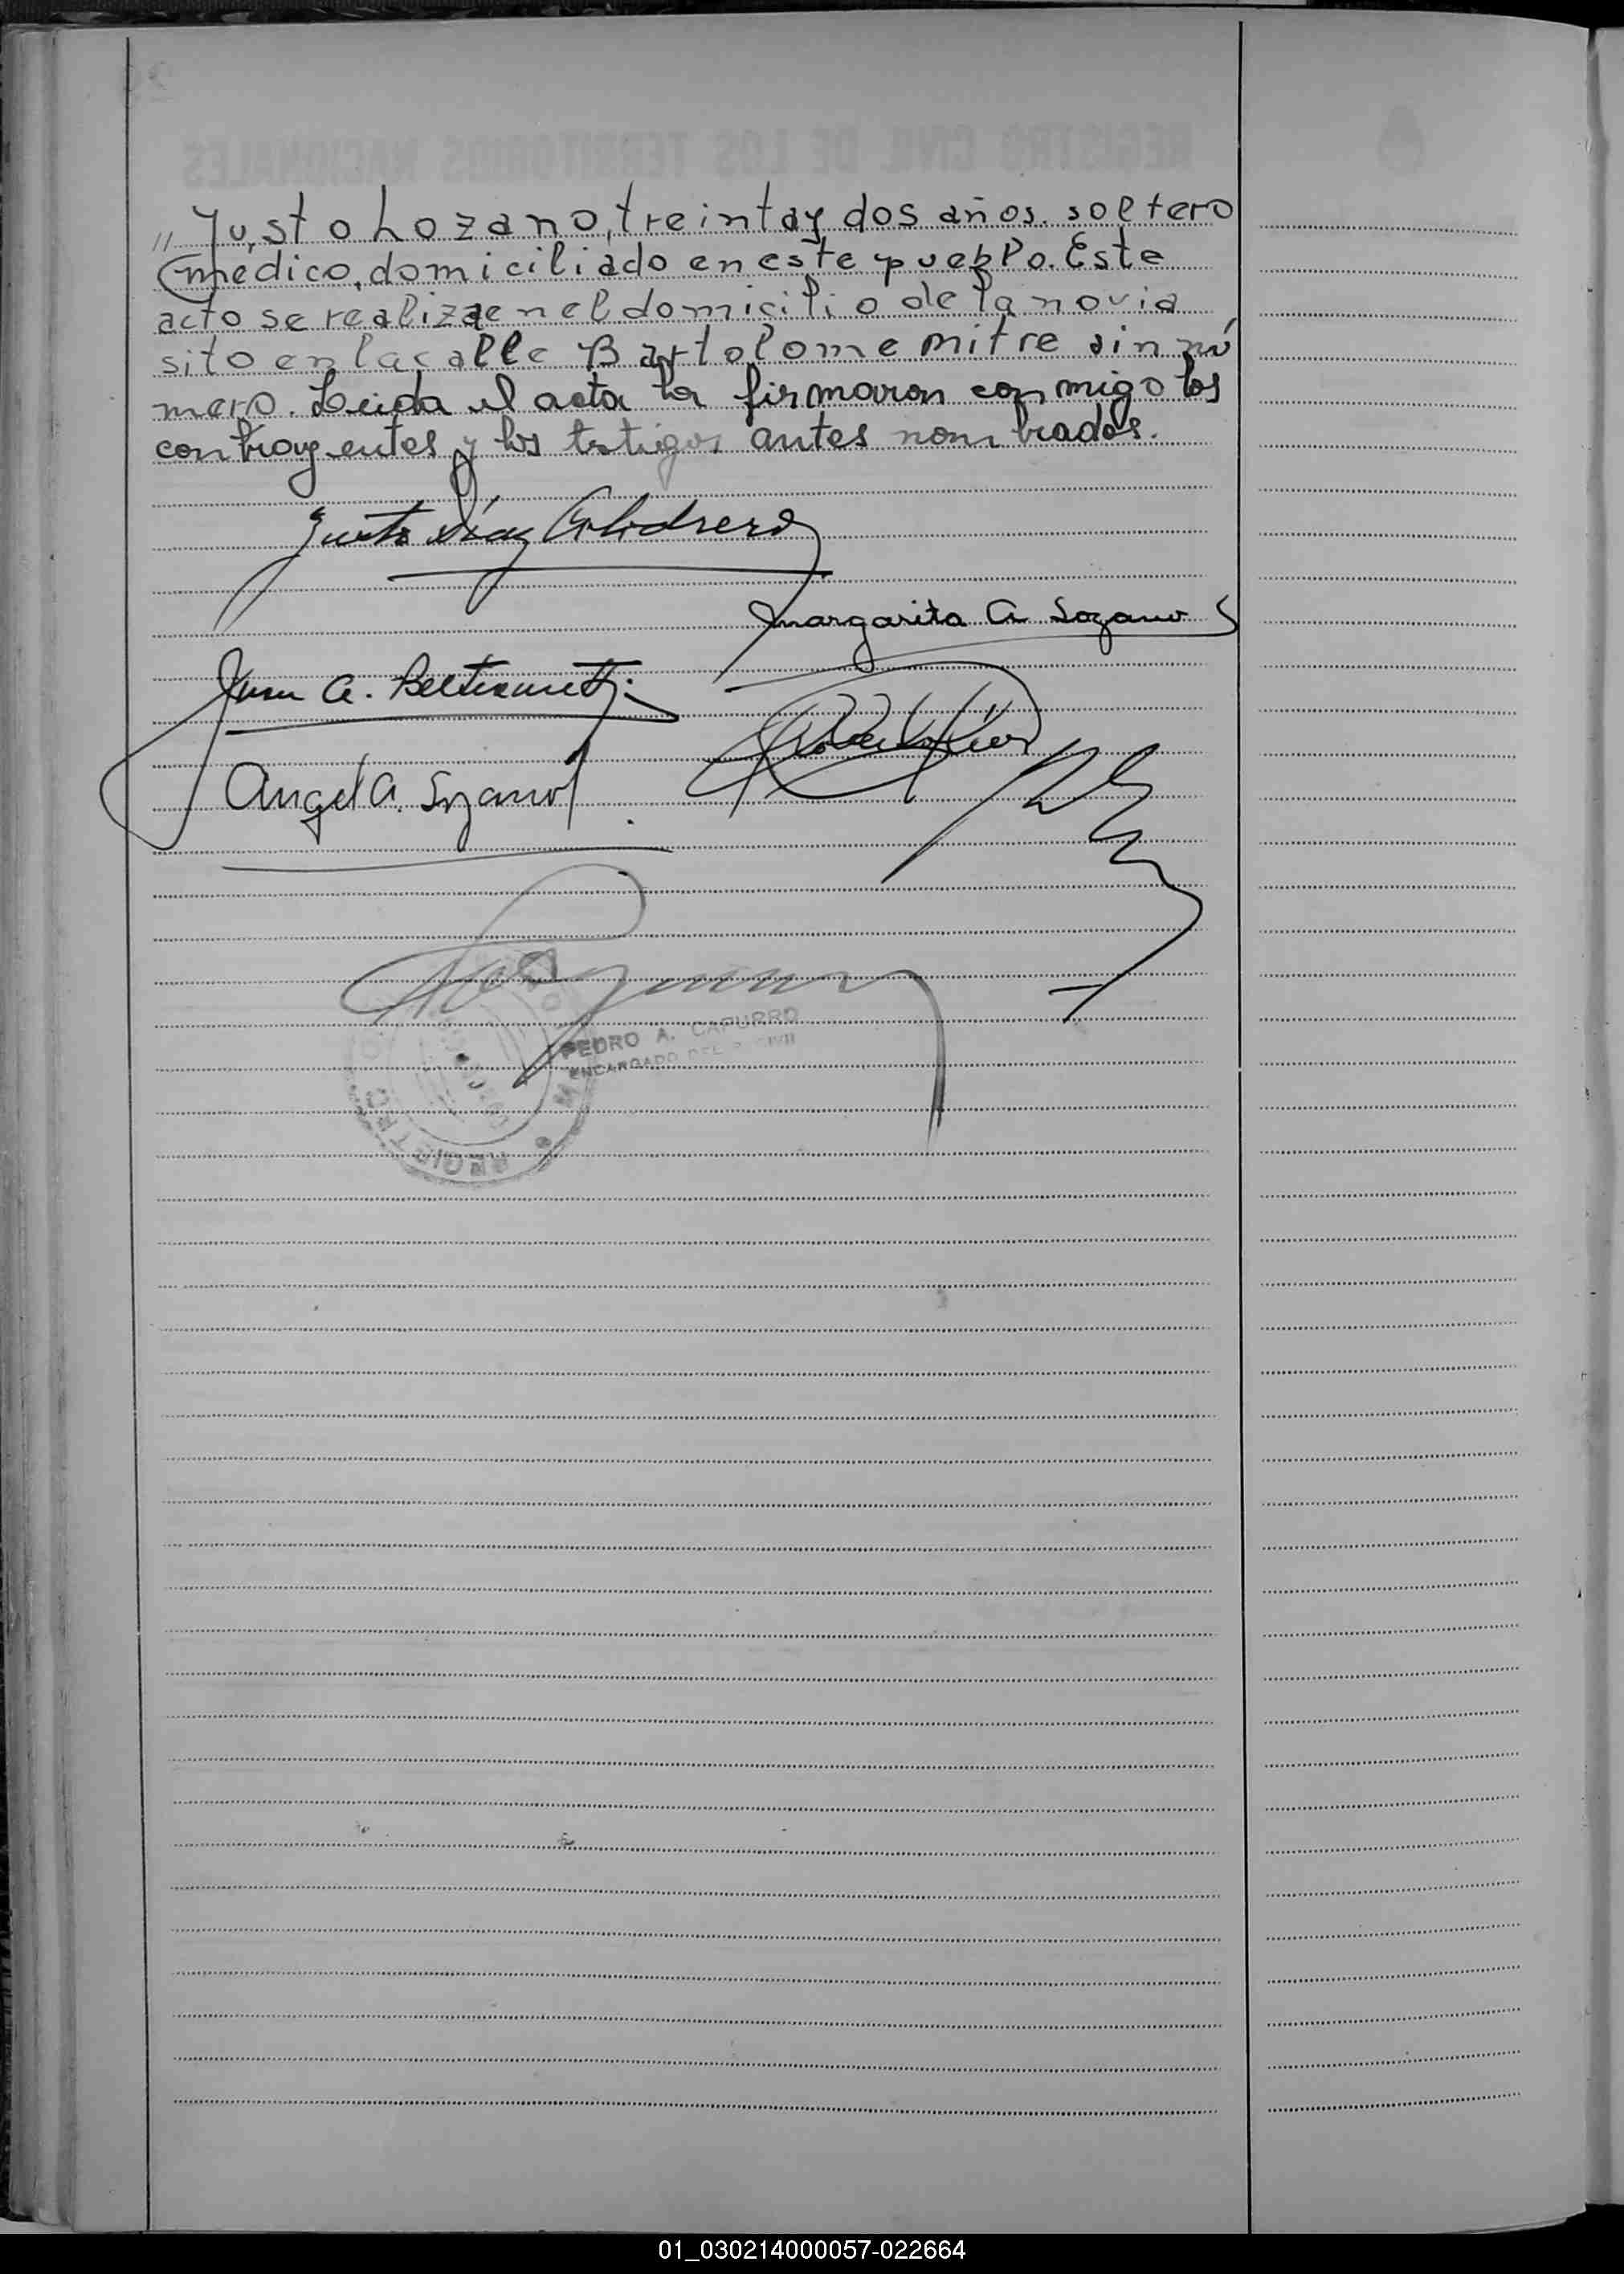 REGISTRO CIVIL DE LOS TERRITORIOS NACIONALES
" Justo Lozano, treinta y dos años. soltero
médico, domiciliado en este pueblo. Este
acto se realiza en el domicilio de la novia
sito en la calle Bartolome mitre sin nú
mero. Leida el acta la firmaron conmigo los
contrayentes y los testigos antes nombrados.
Justo Díaz Colodrero
Margarita A Lozano
Juan A. Beltrametti
Angel A. Lozano
PEDRO A. CAPURRO
ENCARGADO DEL R. CIVIL
REGISTRO
01_030214000057-022664